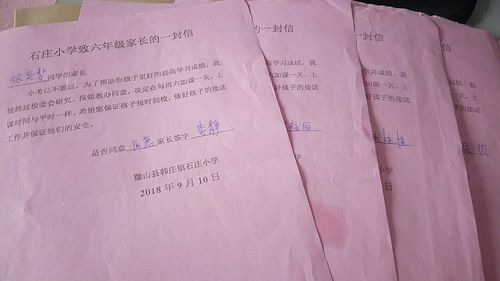 石庄小学致六年级家长的一封信
同学的家长
小考已不遥远，为了帮助你孩子更好的提高学习成绩，我
校经过校委会研究、报镇教办同意，决定在每周六加课一天，上
课时间与平时一样。希望您保证孩子按时到校，做好孩子的接送
工作并保证他们的安全。
是否同意 同意 家长签字 李静
微山县韩庄镇石庄小学
2018年9月10日
一封信
高学习成绩，我
六加课一天，上
好孩子的接送
丽
小学
10日
封信
学习成绩，我
加课一天，上
孩子的接送
信
成绩，我
一天，上
的接送